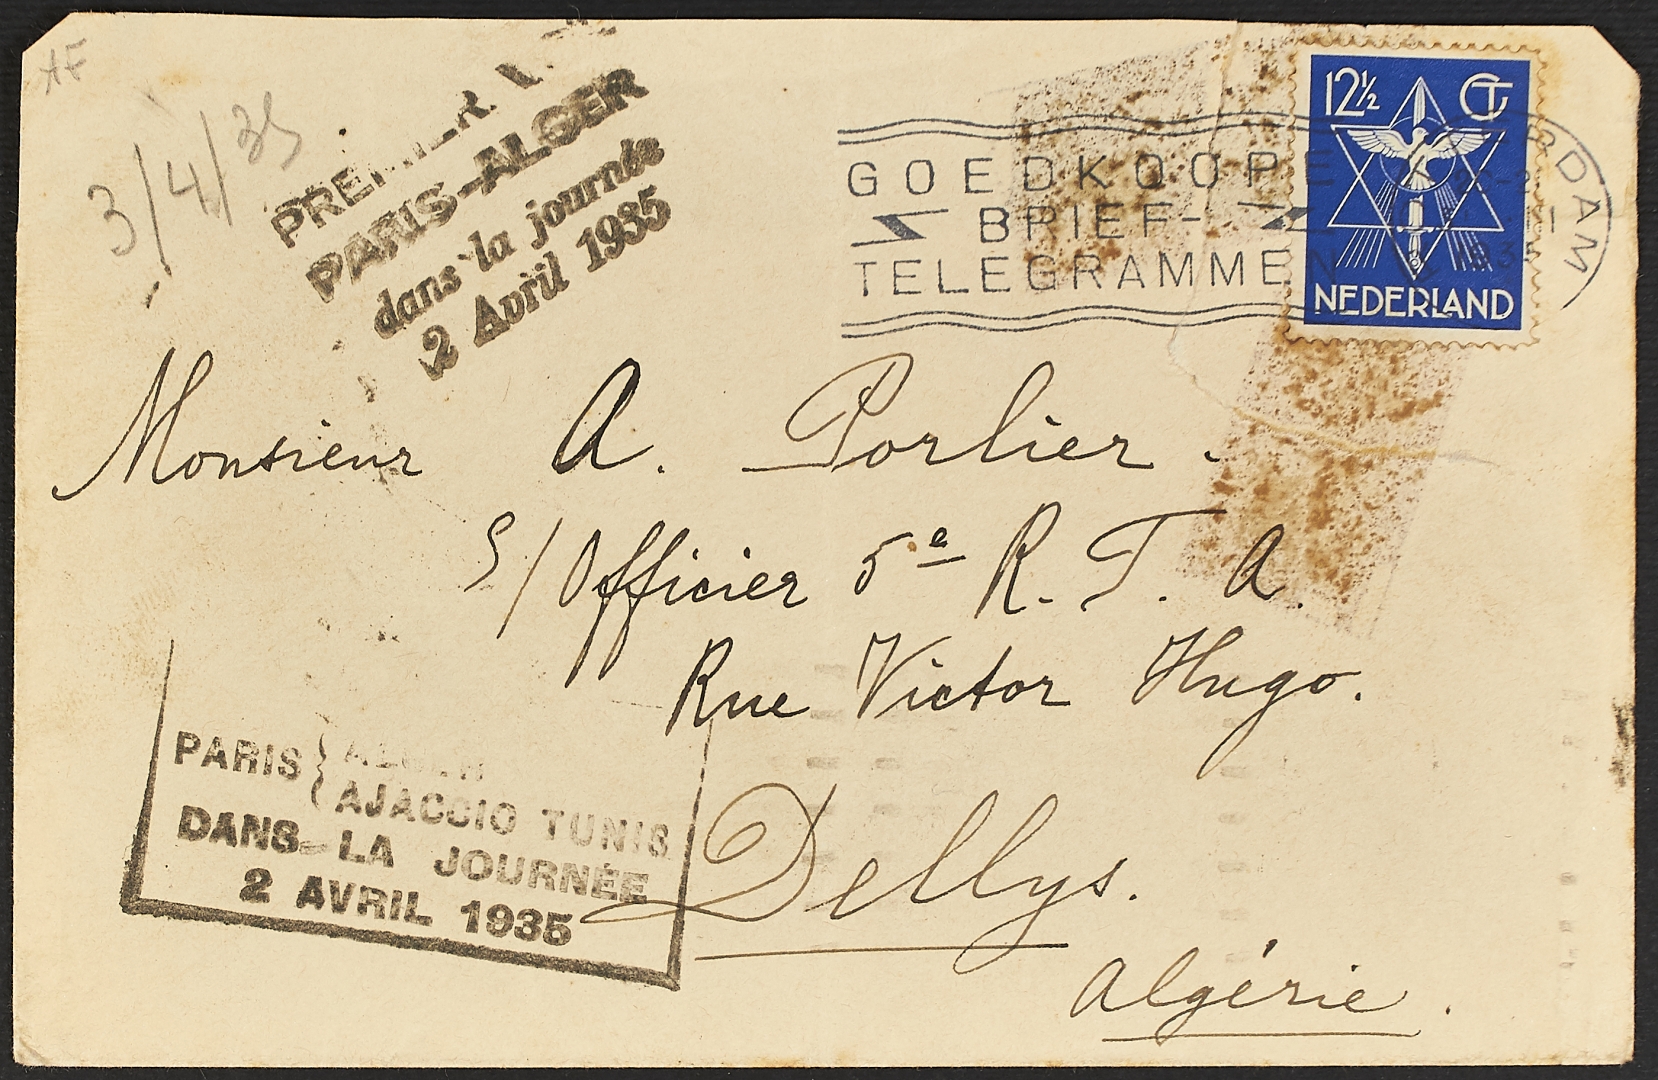 AF
3/4/35
PREMIER V
PARIS-ALGER
dans la journée
2 Avril 1935
GOEDKOOPE
BRIEF-
TELEGRAMMEN
12½ CT
NEDERLAND
RDAM
Monsieur A. Porlier.
S/Officier 5e R. T. A.
Rue Victor Hugo.
Dellys.
Algérie.
PARIS { ALGER
AJACCIO TUNIS
DANS LA JOURNÉE
2 AVRIL 1935